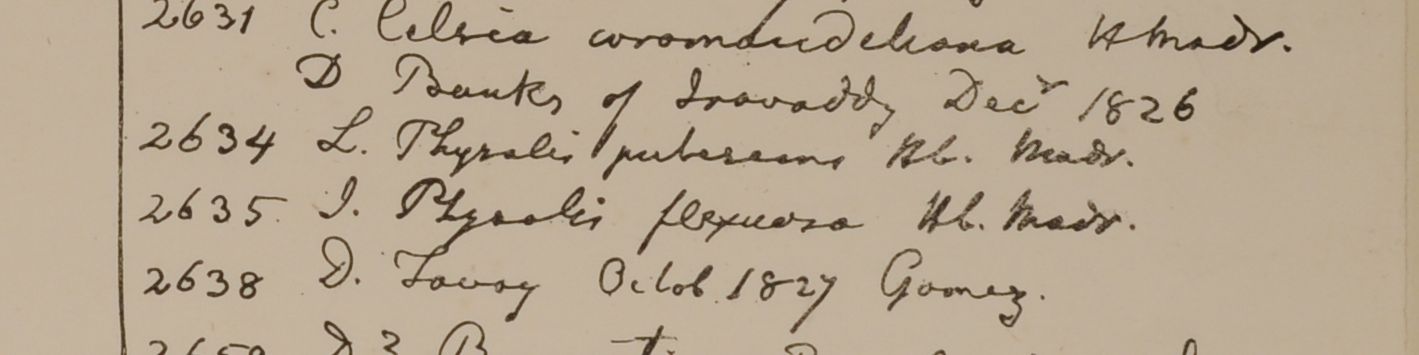 2631 C. Celsia coromandeliana H Madr.
D Banks of Irawaddy Decr 1826
2634 L. Physalis pubescens Hb. Madr.
2635 I. Physalis flexuosa Hb. Madr.
2638 D. Tavoy Octob. 1827 Gomez.